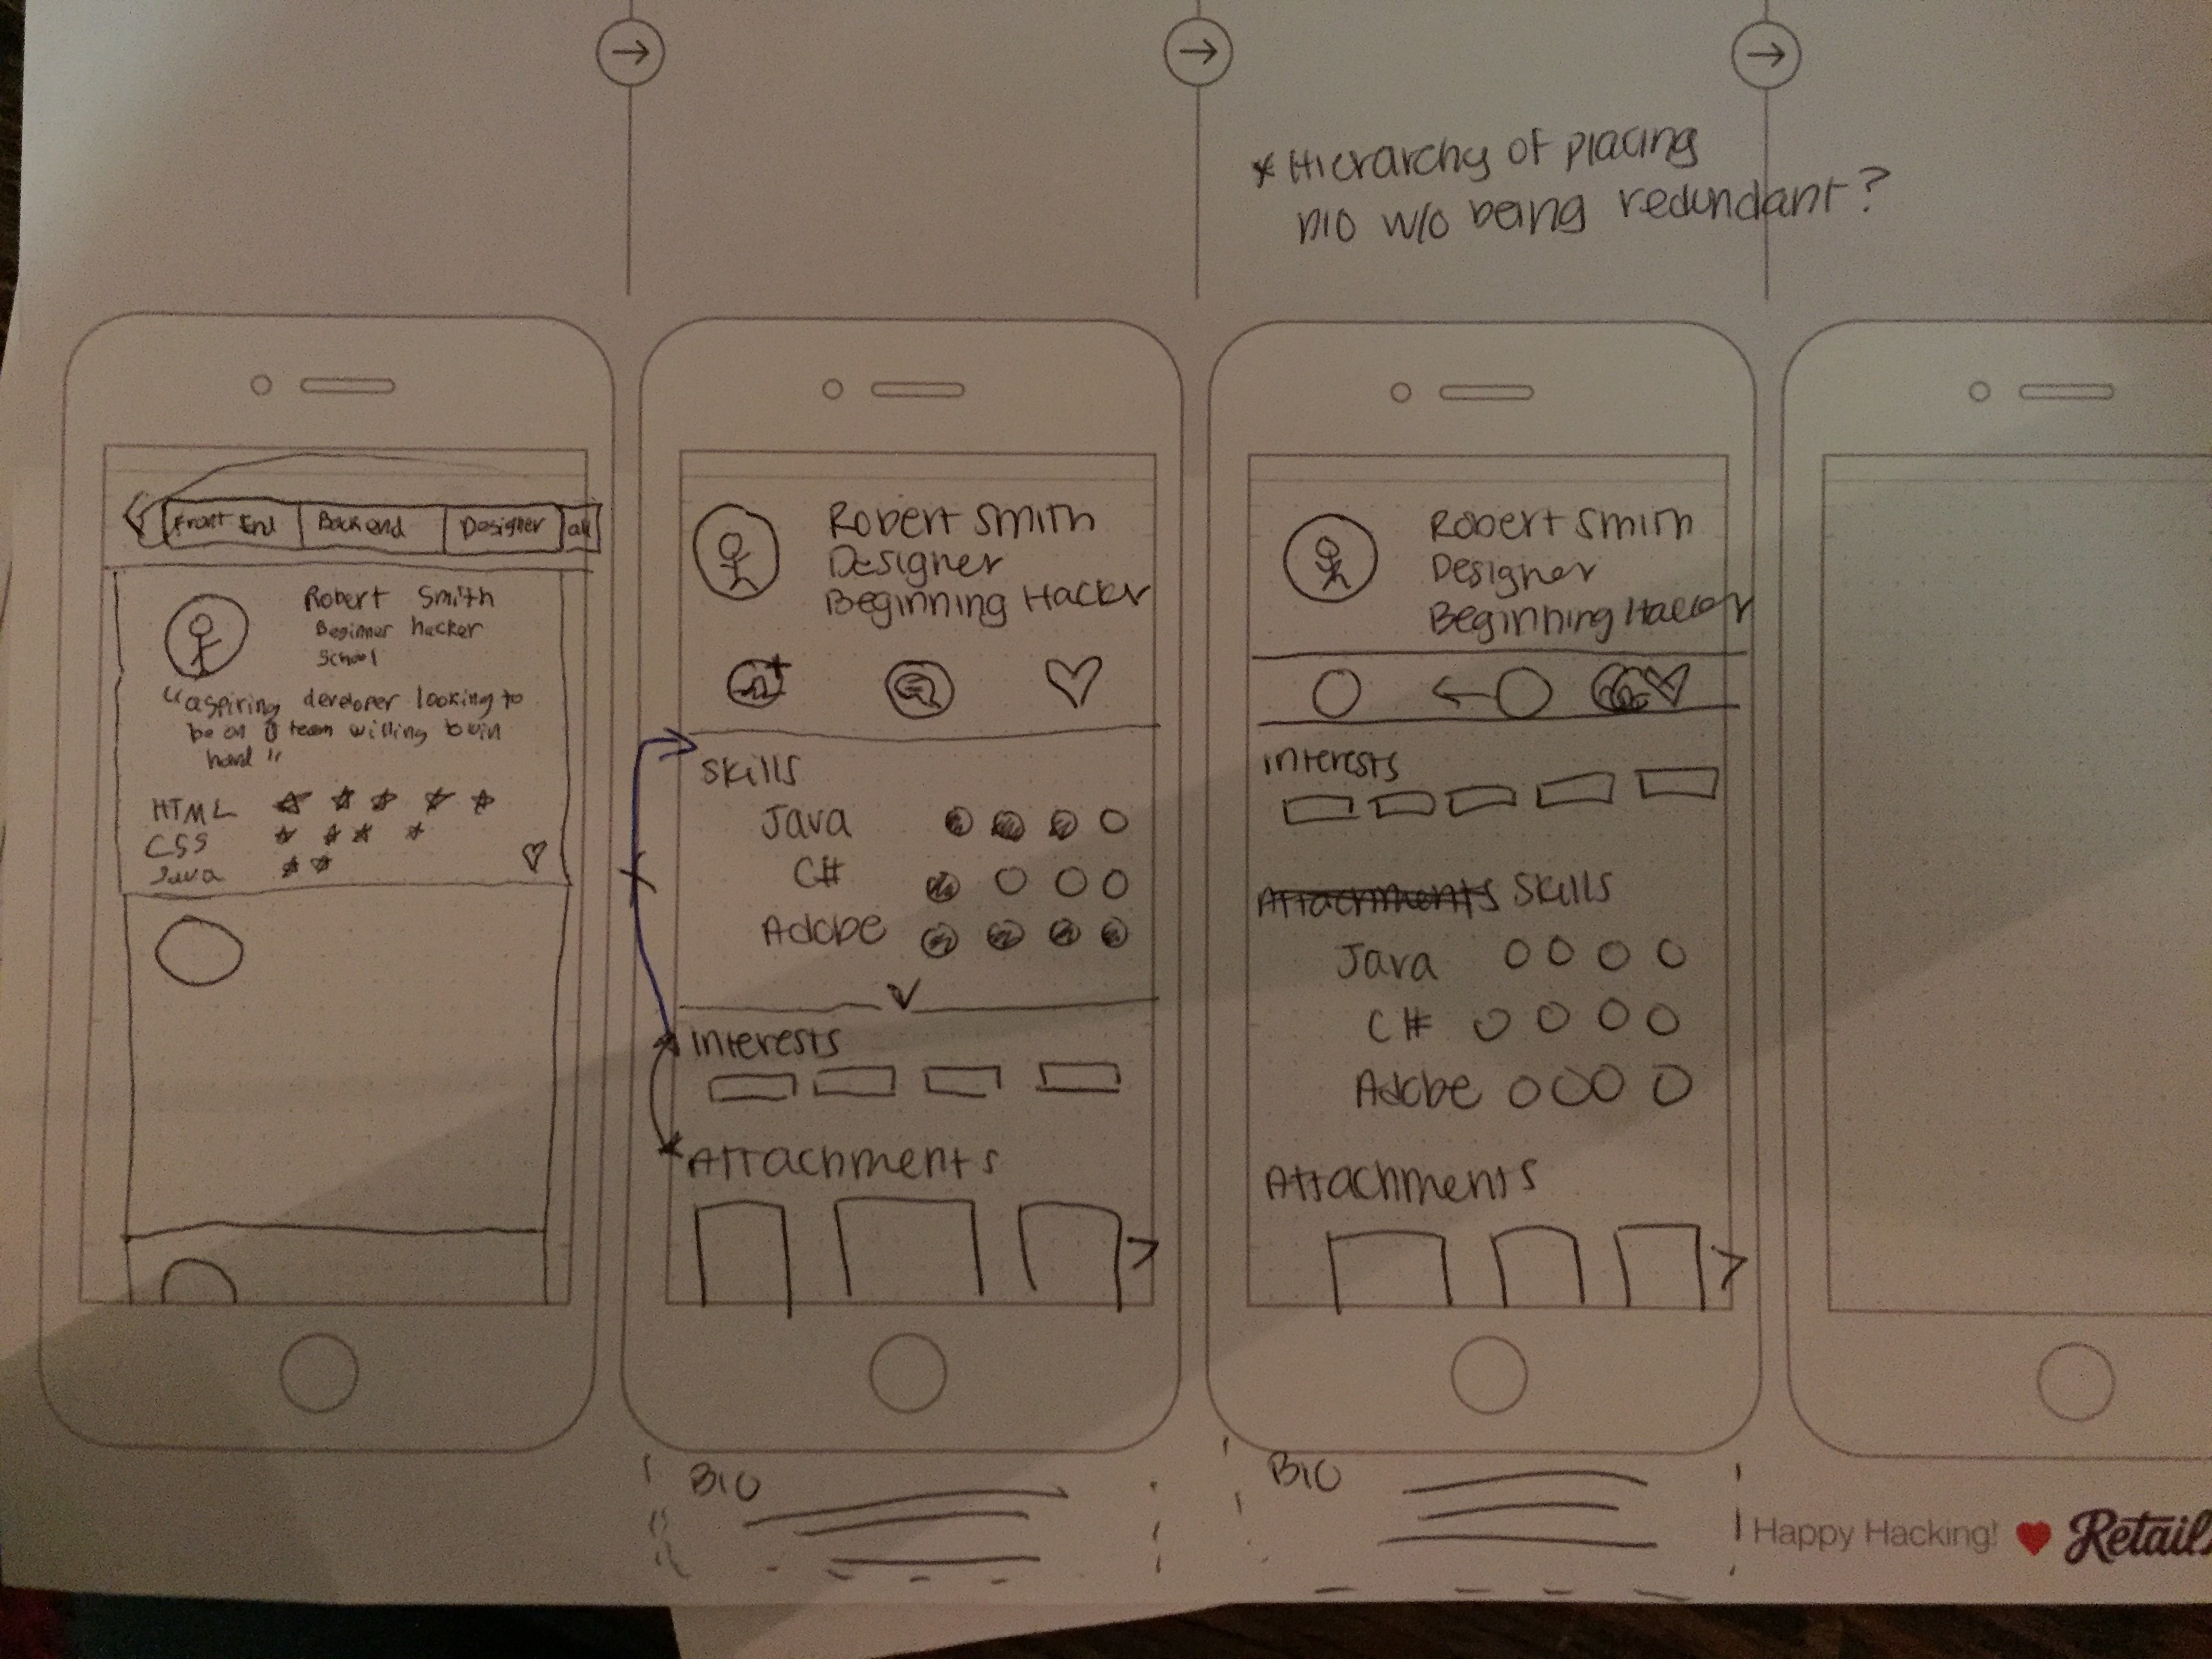 * Hierarchy of placing
bio w/o being redundant?
Front End
Back end
Designer
all
Robert Smith
Beginner hacker
School
"aspiring developer looking to
be on a team willing to win
hard"
HTML
CSS
Java
Robert Smith
Designer
Beginning Hacker
Skills
Java
C#
Adobe
Interests
Attachments
BIO
Robert Smith
Designer
Beginning Hacker
Interests
Attachments Skills
Java
C#
Adobe
Attachments
BIO
Happy Hacking! ♥ Retail